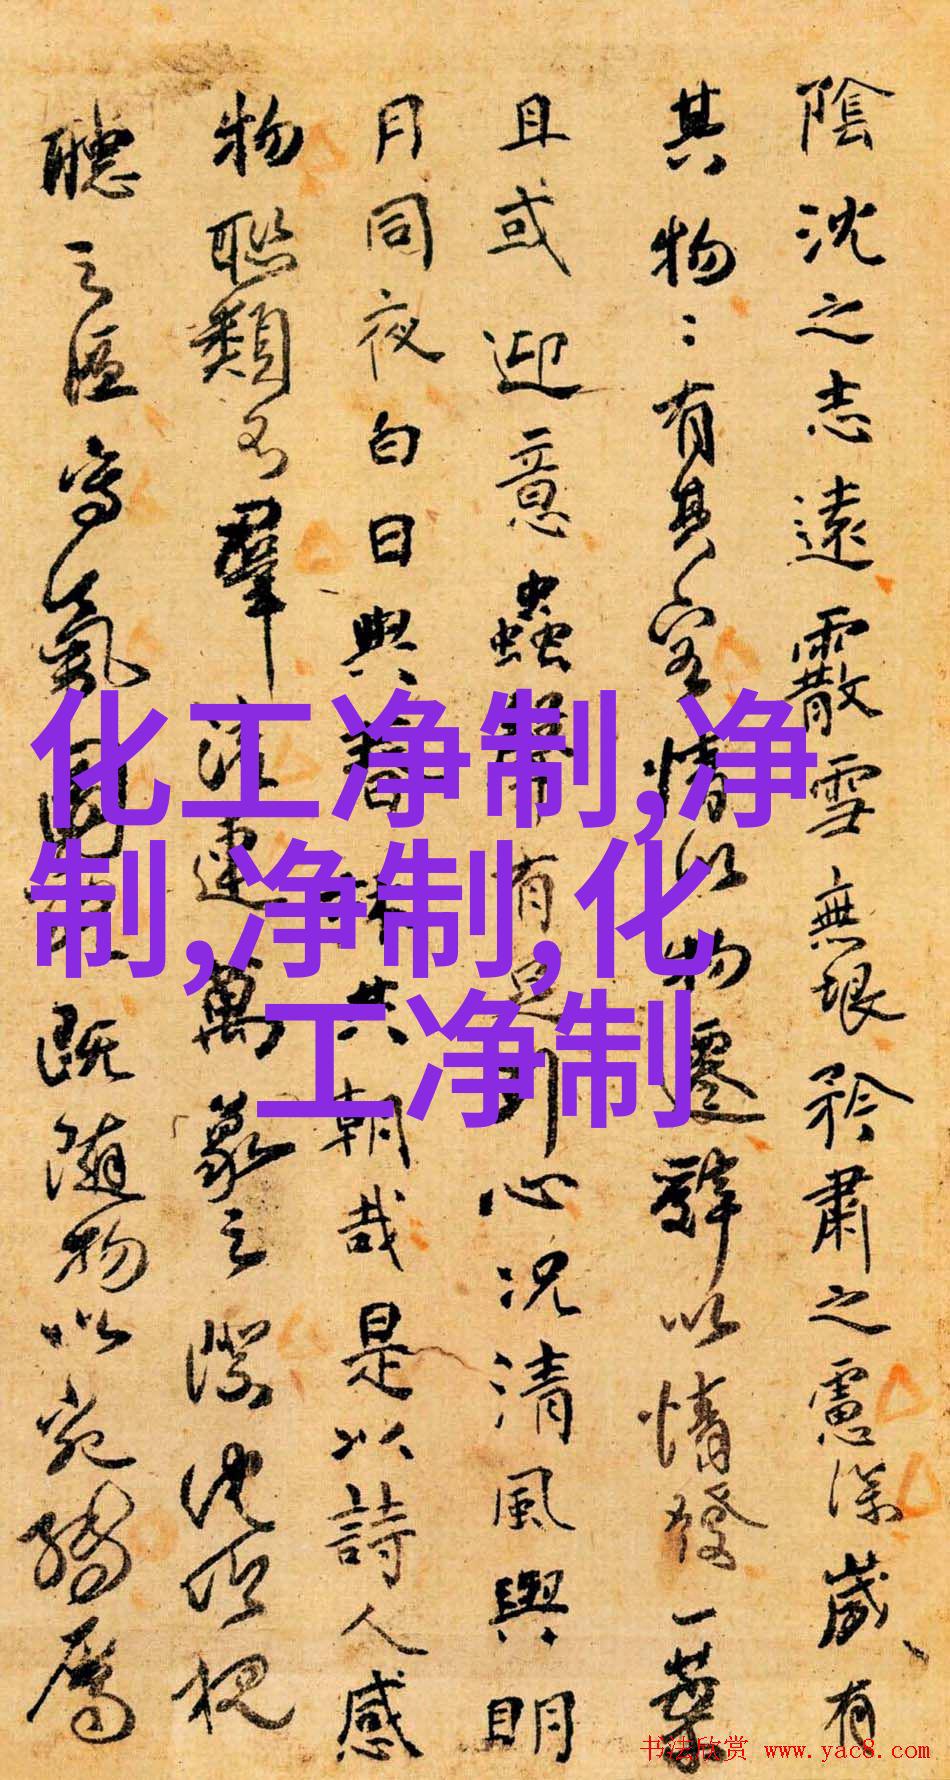 陰沈之志遠霰雪無垠矜肅之慮深歲有
其物物有其容情以物遷辭以情發一葉
且或迎意蟲聲有足引心況清風與明
月同夜白日與春林共朝哉是以詩人感
物聯類不窮流連萬象之際沈吟視
聽之區寫氣圖貌既隨物以宛轉屬
化工净制,净
制,净制,化
工净制
书法欣赏 www.yac8.com